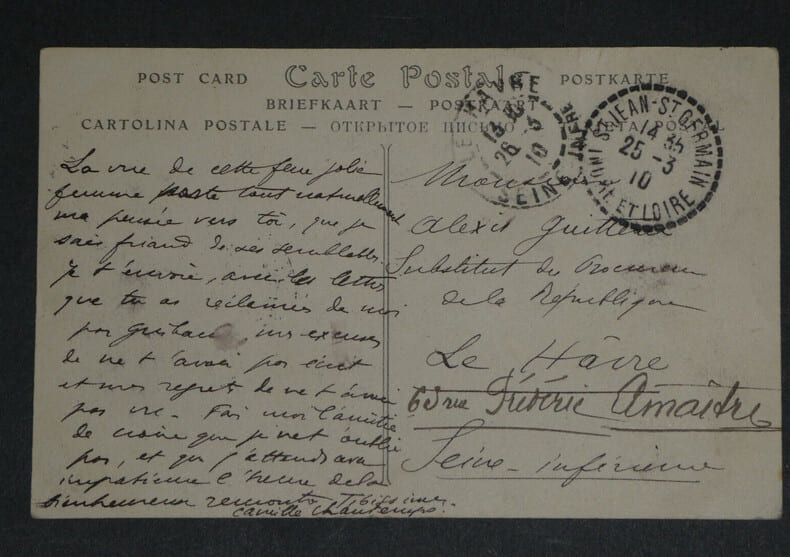 POST CARD Carte Postale POSTKARTE
BRIEFKAART — POSTKAART
CARTOLINA POSTALE — ОТКРЫТОЕ ПИСЬМО
LE HAVRE
26 - 3
10
SEINE INFRE
ST JEAN-ST GERMAIN
14 35
25 - 3
10
INDRE ET LOIRE
La vue de cette feue jolie
femme porte tout naturellement
ma pensée vers toi, que je
sais friand de ses semblables.
Je t'envoie, avec les lettres
que tu as réclamées de moi
par, mes excuses
de ne t'avoir pas écrit
et mes regrets de ne t'avoir
pas vu - Fais moi l'amitié
de croire que je ne t'oublie
pas, et que j'attends avec
impatience l'heure de la
bienheureuse rencontre
Camille Chautemps.
Monsieur
Alexis
Substitut du Procureur
de la République
Le Hâvre
63 rue Frédéric Amaître
Seine-inférieure